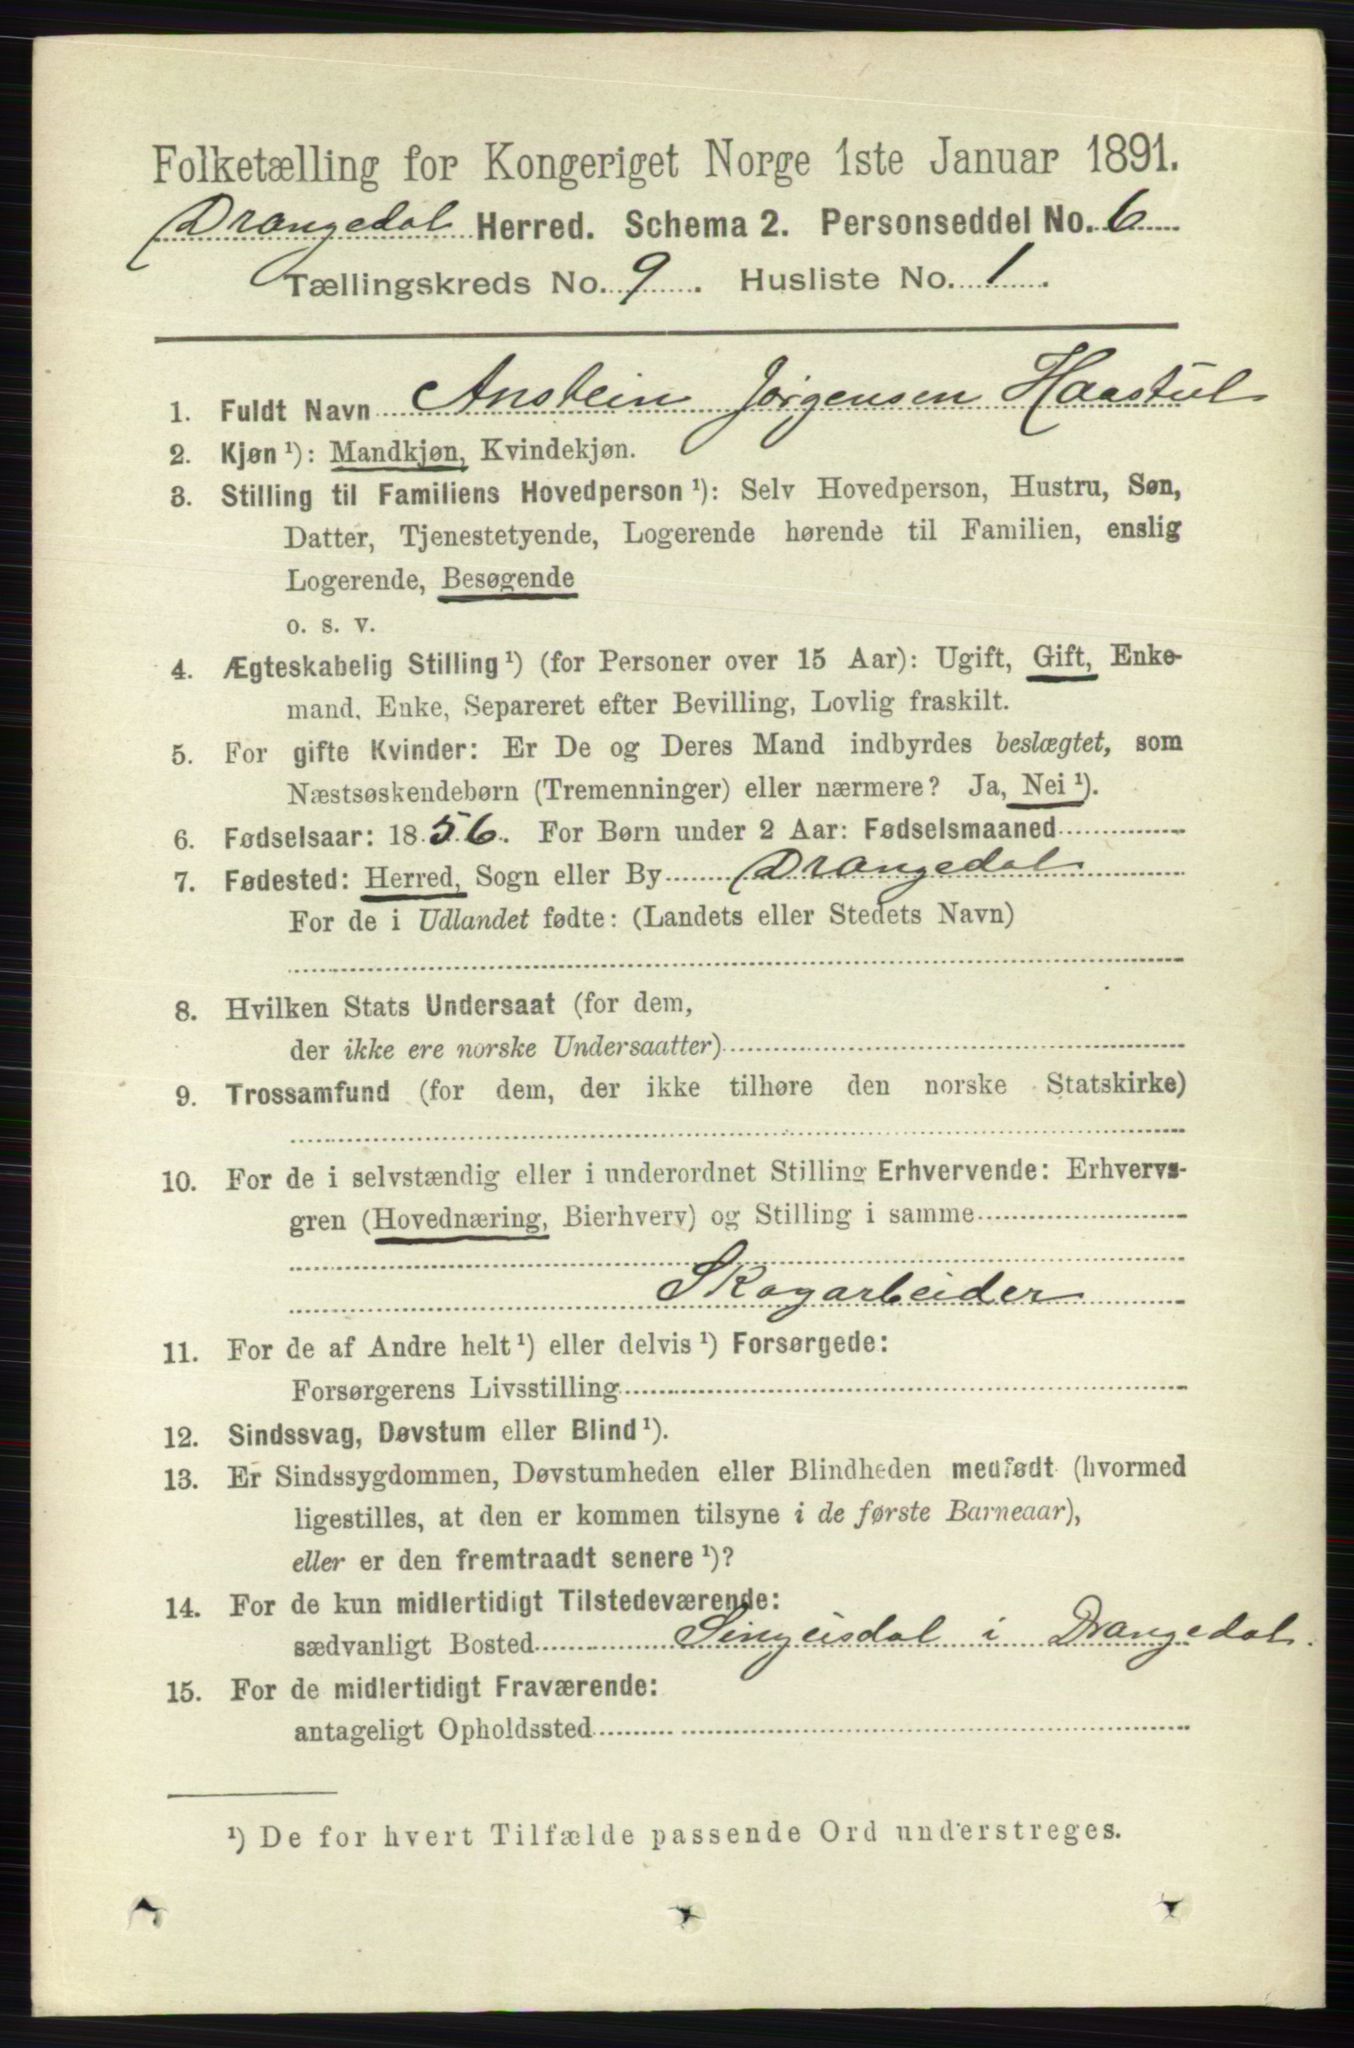 Folketælling for Kongeriget Norge 1ste Januar 1891.
Drangedal Herred. Schema 2. Personseddel No. 6
Tællingskreds No. 9. Husliste No. 1.
1. Fuldt Navn Anstein Jørgensen Haastul
2. Kjøn ¹): Mandkjøn, Kvindekjøn.
3. Stilling til Familiens Hovedperson ¹): Selv Hovedperson, Hustru, Søn,
Datter, Tjenestetyende, Logerende hørende til Familien, enslig
Logerende, Besøgende
o. s. v.
4. Ægteskabelig Stilling ¹) (for Personer over 15 Aar): Ugift, Gift, Enke-
mand, Enke, Separeret efter Bevilling, Lovlig fraskilt.
5. For gifte Kvinder: Er De og Deres Mand indbyrdes beslægtet, som
Næstsøskendebørn (Tremenninger) eller nærmere? Ja, Nei ¹).
6. Fødselsaar: 1856. For Børn under 2 Aar: Fødselsmaaned
7. Fødested: Herred, Sogn eller By Drangedal
For de i Udlandet fødte: (Landets eller Stedets Navn)
8. Hvilken Stats Undersaat (for dem,
der ikke ere norske Undersaatter)
9. Trossamfund (for dem, der ikke tilhøre den norske Statskirke)
10. For de i selvstændig eller i underordnet Stilling Erhvervende: Erhvervs-
gren (Hovednæring, Bierhverv) og Stilling i samme
Skogarbeider
11. For de af Andre helt ¹) eller delvis ¹) Forsørgede:
Forsørgerens Livsstilling
12. Sindssvag, Døvstum eller Blind ¹).
13. Er Sindssygdommen, Døvstumheden eller Blindheden medfødt (hvormed
ligestilles, at den er kommen tilsyne i de første Barneaar),
eller er den fremtraadt senere ¹)?
14. For de kun midlertidigt Tilstedeværende:
sædvanligt Bosted i Drangedal.
15. For de midlertidigt Fraværende:
antageligt Opholdssted
¹) De for hvert Tilfælde passende Ord understreges.